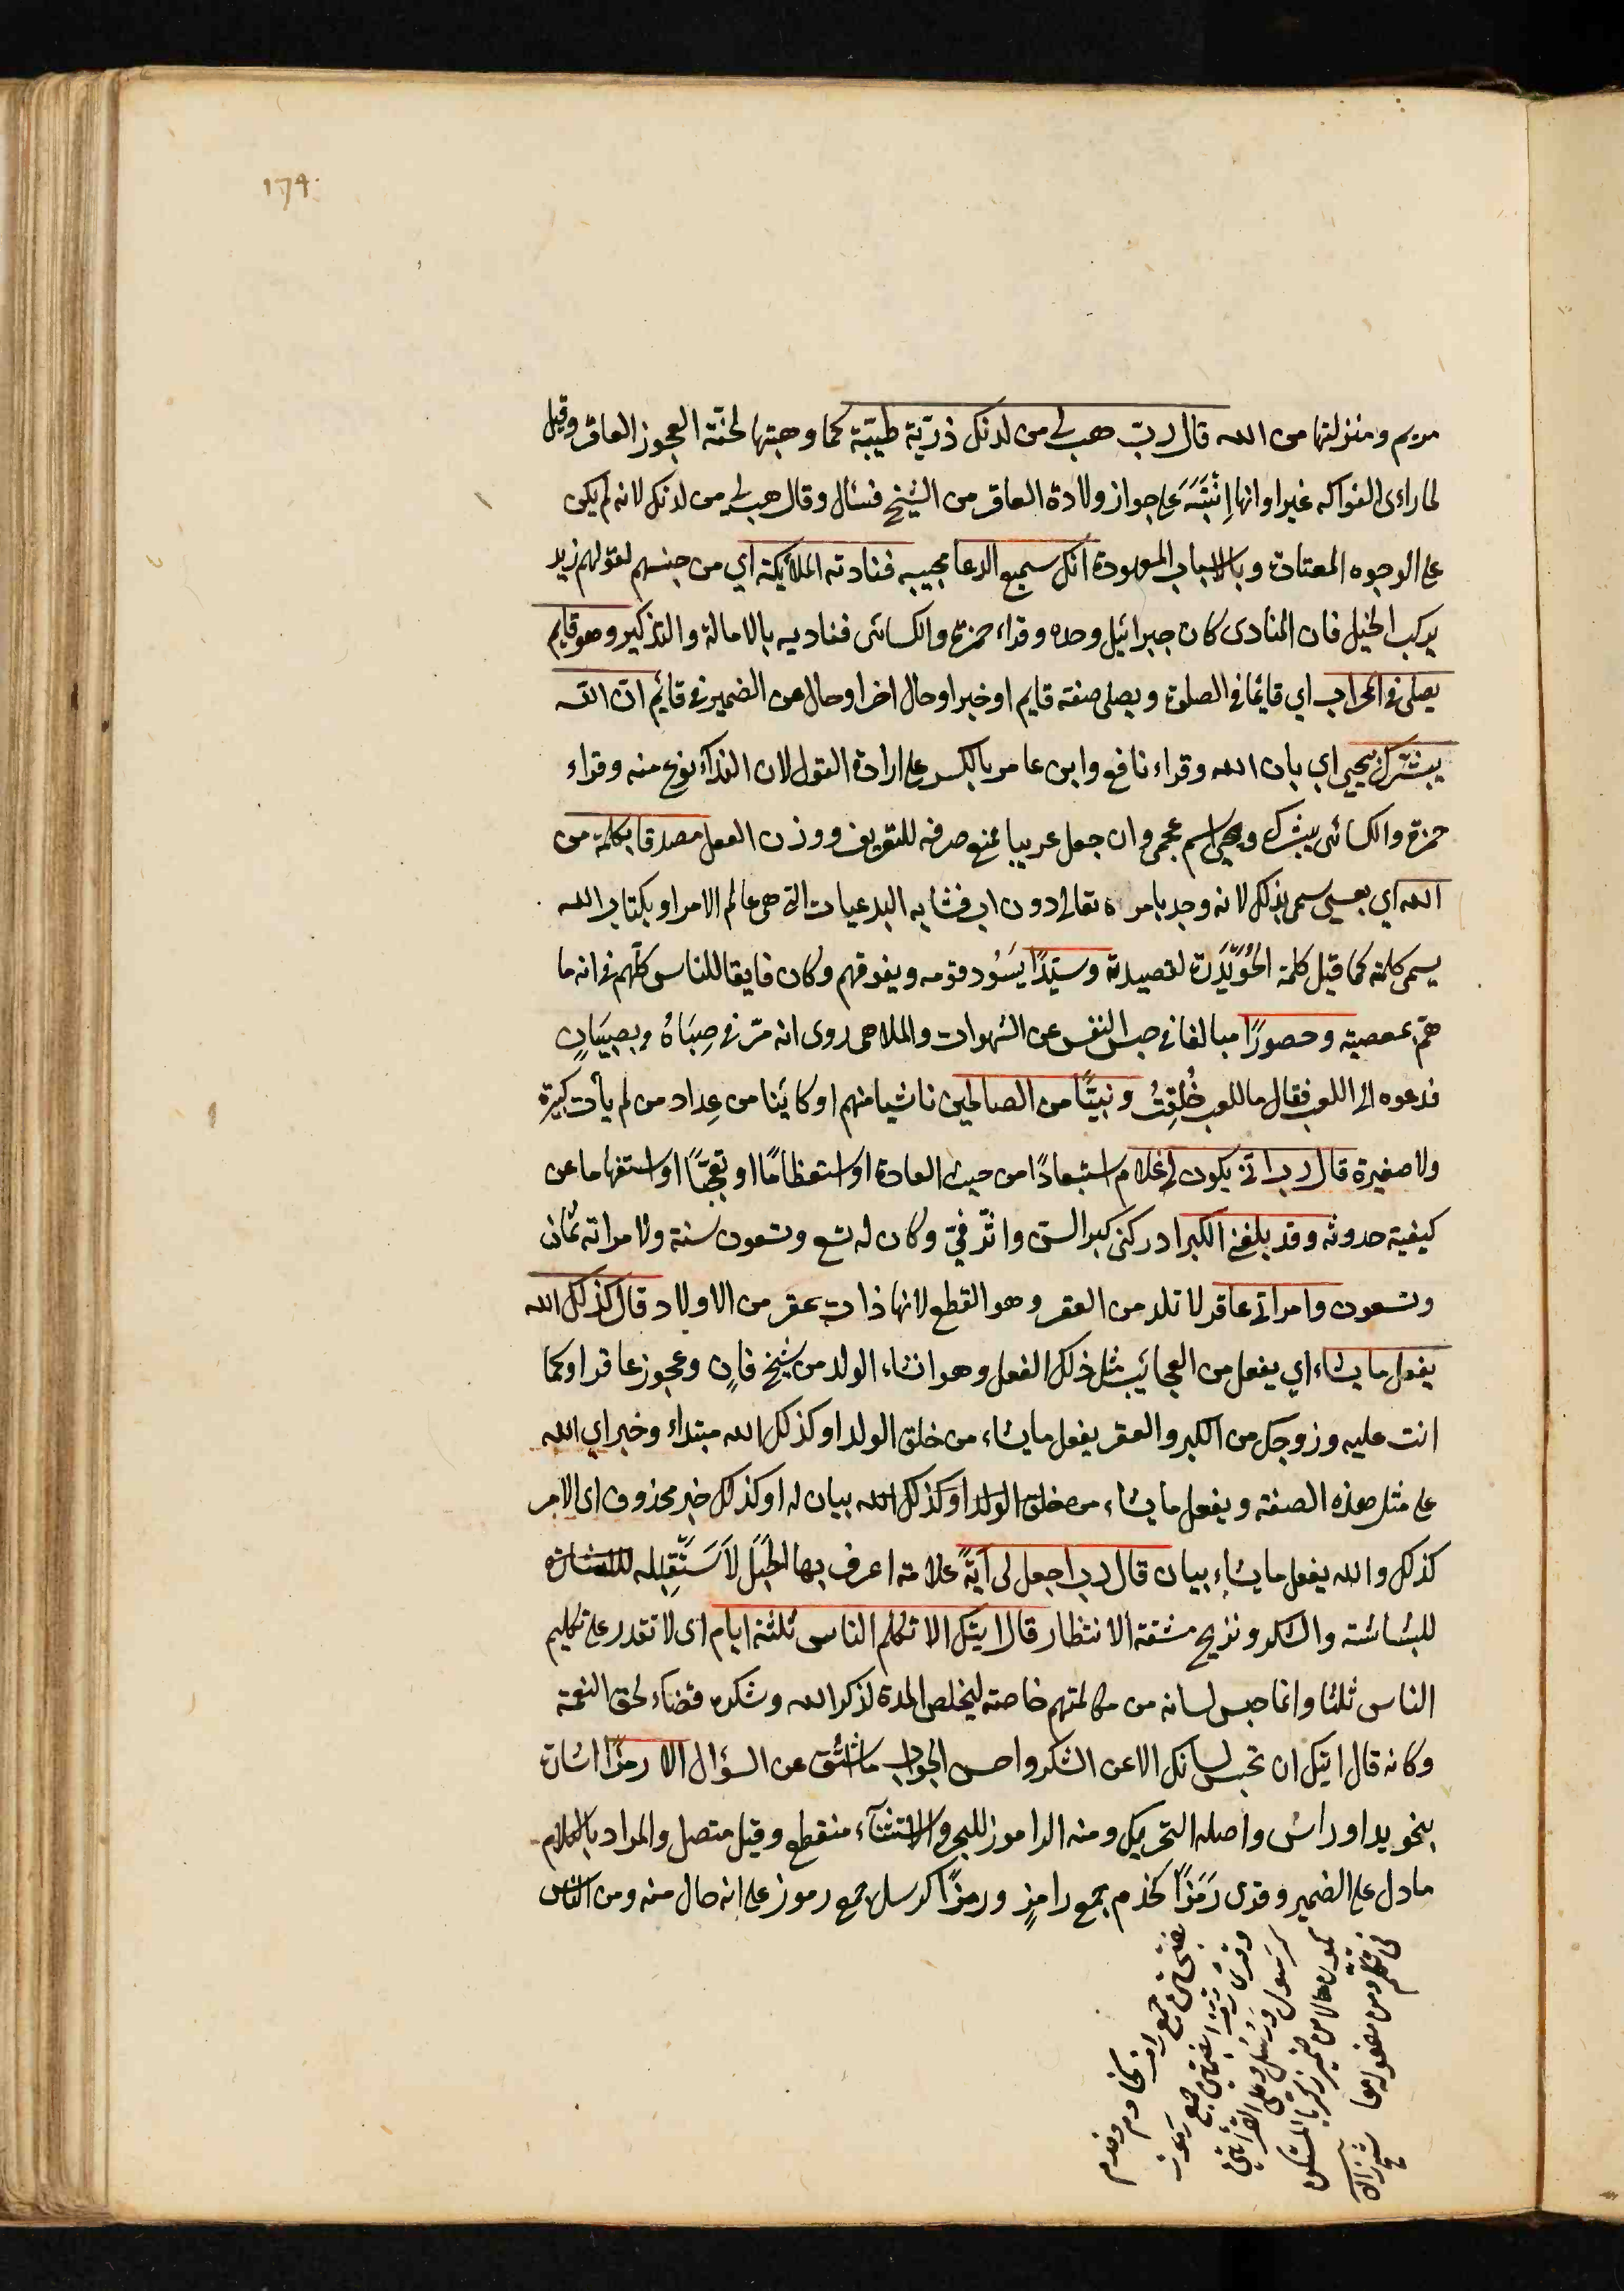 174
مريم ومنزلتها من الله قال رب هب لي من لدنك ذريّة طيّبة كما وهبتها لحنّة العجوز العاقر وقيل
لما راءى الفواكه غير اوانها اِنْتَبَهَ على جواز ولادة العاقر من الشيخ فسئال وقال هب لي من لدنك لانه لم يكن
على الوجوه المعتادة وبالاسباب المعهودة انك سميع الدعا مجيبه فنادته الملائكة اي من جنسهم لقولهم زيد
يركب الخيل فان المنادى كان جبرائيل وحده وقراء حمزة والكسائى فناديه بالامالة والتذكير وهو قايم
يصلى في المحراب اي قائما في الصلوة ويصلى صفة قايم او خبر او حال اخر او حال عن الضمير في قائم انّ الله
يبشّرك بيحيى اي بان الله وقراء نافع وابن عامر بالكسر على ارادة القول لان النداء نوع منه وقراء
حمزة والكسائى يبشرك ويحيى اسم عجمى وان جعل عربيا فمنع صرفه للتعريف ووزن الفعل مصدقا بكلمة من
الله اي بعيسى سمى بذلك لانه وجد بامره تعالى دون اب فشابه البدعيات التى هى عالم الامر او بكتاب الله
يسمى كلمة كما قيل كلمة الحُوَيْدَرَة لقصيدة وسيّدًا يَسُود قومه ويفوقهم وكان فايقا للناس كلّهم في انه ما
همّ بمعصية وحصورًا مبالغا في حبس النفس عن الشهوات والملاهى روى انه مرّ في صِبَاهُ بصبيَانٍ
فدعوه الى اللعب فقال ما للعب خُلِقْتُ ونبيًّا من الصالحين ناشيا منهم او كائنا من عِداد من لم يأت كبيرة
ولا صغيرة قال رب انّى يكون لي غلام استبعادًا من حيث العادة او استعظامًا او تعجّبًا او استفهاما عن
كيفية حدوثه وقد بلغني الكبر ادركنى كبر السنّ واثّر فيّ وكان له تسع وتسعون سنة ولامراته ثمان
وتسعون وامراتي عاقر لا تلد من العقر وهو القطع لانها ذات عقر من الاولاد قال كذلك الله
يفعل ما يشاء اي يفعل من العجائب مثل ذلك الفعل وهو انشاء الولد من شيخ فانٍ وعجوز عاقر او كما
انت عليه وزوجك من الكبر والعقر يفعل ما يشاء من خلق الولد او كذلك الله مبتداء وخبر اي الله
على مثل هذه الصفة ويفعل ما يشاء من خلق الولد او كذلك الله بيان له او كذلك خبر محذوف اى الامر
كذلك والله يفعل ما يشاء بيان قال رب اجعل لى آيةً علامة اعرف بها الحَبَل لاَستَقبِله
للبشاشة والشكر وتزيح مشقة الانتظار قال ايتك الا تكلم الناس ثلثة ايام اى لا تقدر على تكليم
الناس ثلثا وانما حبس لسانه من مكالمتهم خاصة ليخلص المدة لذكر الله وشكره قضاء لحق النعمة
وكانه قال ايتك ان تحبس لسانك الا عن الشكر واحسن الجواب ما اشتق عن السؤال الا رمزًا اشارة
بنحو يد او راس واصله التحريك ومنه الراموز للبحر والاستثناء منقطع وقيل متصل والمراد بالكلام
ما دل على الضمير وقرى رَمَزًا كخدم جمع رامزٍ ورمزًا كرسل جمع رموز على انه حال منه ومن الناس
بفتحتين جمع رامز كخادم وخدم
وقرى رُمُزا بضمتين جمع رموز
كرسول ورسل وعلى القرائتين
يكون حالا من ضمير زكريا المستكن
في تكلم ومن مفعوله معا شيخ زاده